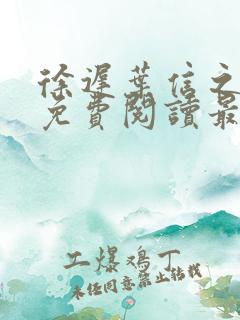 徐遲葉信之
免費閱讀最
工爆鸡丁
未经同意禁止转载